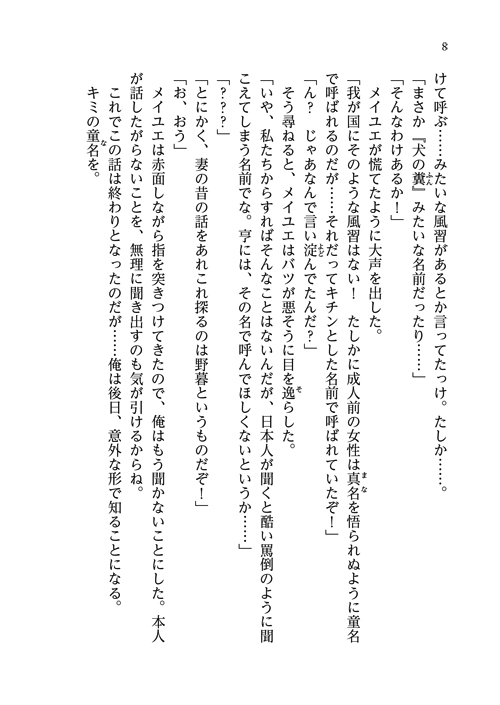 8
けて呼ぶ……みたいな風習があるとか言ってたっけ。たしか……。
「まさか『犬の糞』みたいな名前だったり……」
「そんなわけあるか！」
メイユエが慌てたように大声を出した。
「我が国にそのような風習はない！　たしかに成人前の女性は真名を悟られぬように童名
で呼ばれるのだが……それだってキチンとした名前で呼ばれていたぞ！」
「ん？　じゃあなんで言い淀んでたんだ？」
そう尋ねると、メイユエはバツが悪そうに目を逸らした。
「いや、私たちからすればそんなことはないんだが、日本人が聞くと酷い罵倒のように聞
こえてしまう名前でな。亨には、その名で呼んでほしくないというか……」
「？？？」
「とにかく、妻の昔の話をあれこれ探るのは野暮というものだぞ！」
「お、おう」
メイユエは赤面しながら指を突きつけてきたので、俺はもう聞かないことにした。本人
が話したがらないことを、無理に聞き出すのも気が引けるからね。
これでこの話は終わりとなったのだが……俺は後日、意外な形で知ることになる。
キミの童名を。